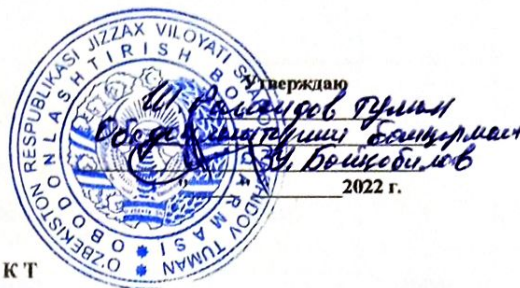 O'ZBEKISTON RESPUBLIKASI JIZZAX VILOYATI TUMAN
OBODONLASHTIRISH BOSHQARMASI
Утверждаю
Ш. Рашидов туман
Ободонлаштириш бошқармаси
У. Бойқобилов
2022 г.
К Т